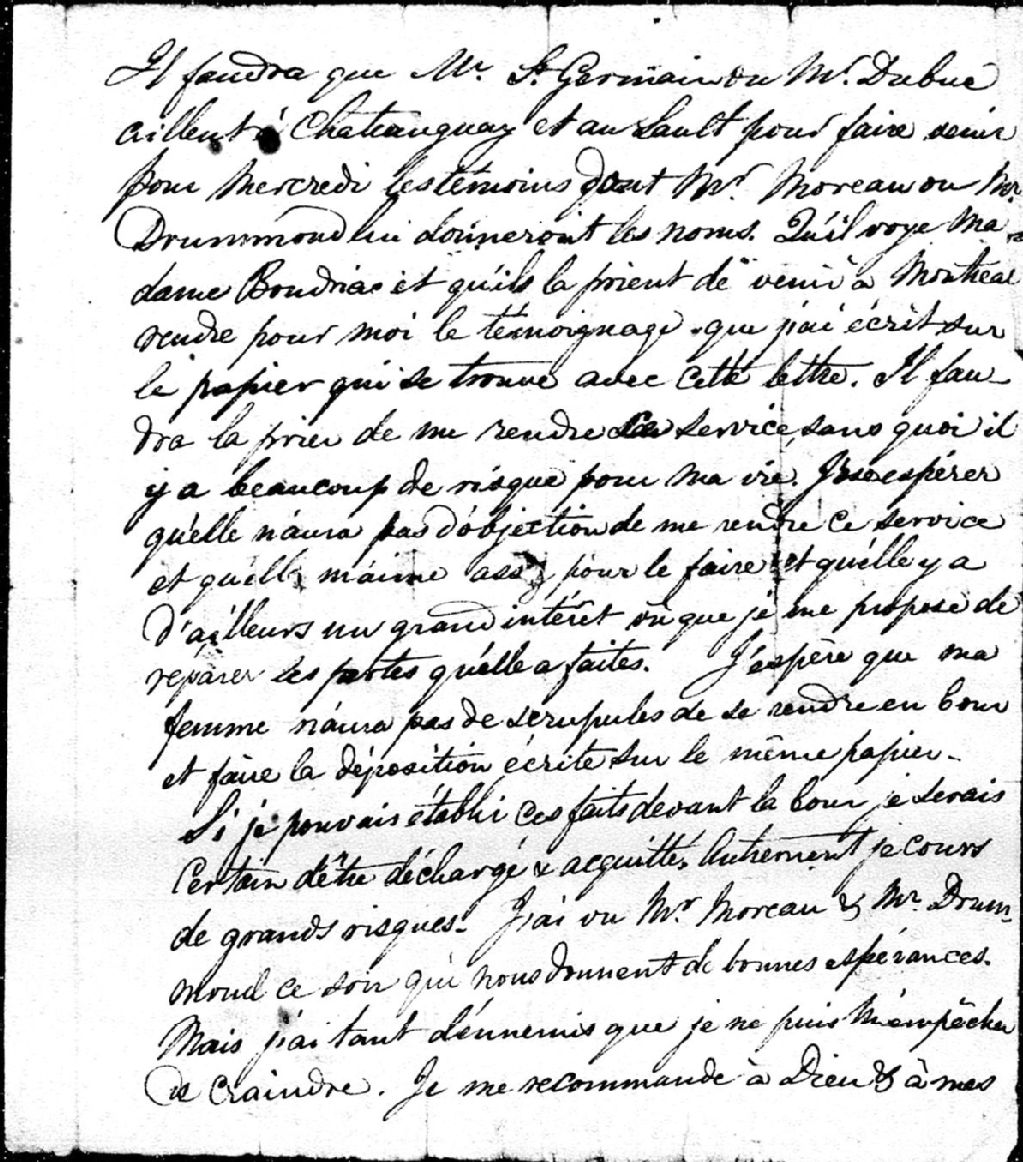 Il faudra que Mr. St. Germain ou Mr. Dubuc
aillent à Chateauguay et au Sault pour faire venir
pour Mercredi les témoins dont Mr. Moreau ou Mr
Drummond lui donneront les noms. Qu'il voye Ma-
dame Boudria et qu'ils la prient de venir à Montréal
rendre pour moi le témoignage que j'ai écrit sur
le papier qui se trouve avec cette lettre. Il fau-
dra la prier de me rendre ce service, sans quoi il
y a beaucoup de risque pour ma vie. J'ose espérer
qu'elle n'aura pas d'objection de me rendre ce service
et qu'elle m'aime assez pour le faire et qu'elle y a
d'ailleurs un grand intérêt vu que je me propose de
réparer les pertes qu'elle a faites. J'espère que ma
femme n'aura pas de scrupules de se rendre en Cour
et faire la déposition écrite sur le même papier.
Si je pouvais établir ces faits devant la Cour je serais
certain d'être déchargé & acquitté. Autrement je cours
de grands risques. J'ai vu Mr. Moreau & Mr. Drum-
mond ce soir qui nous donnent de bonnes espérances.
Mais j'ai tant d'ennemis que je ne puis m'empêcher
de craindre. Je me recommande à Dieu & à mes